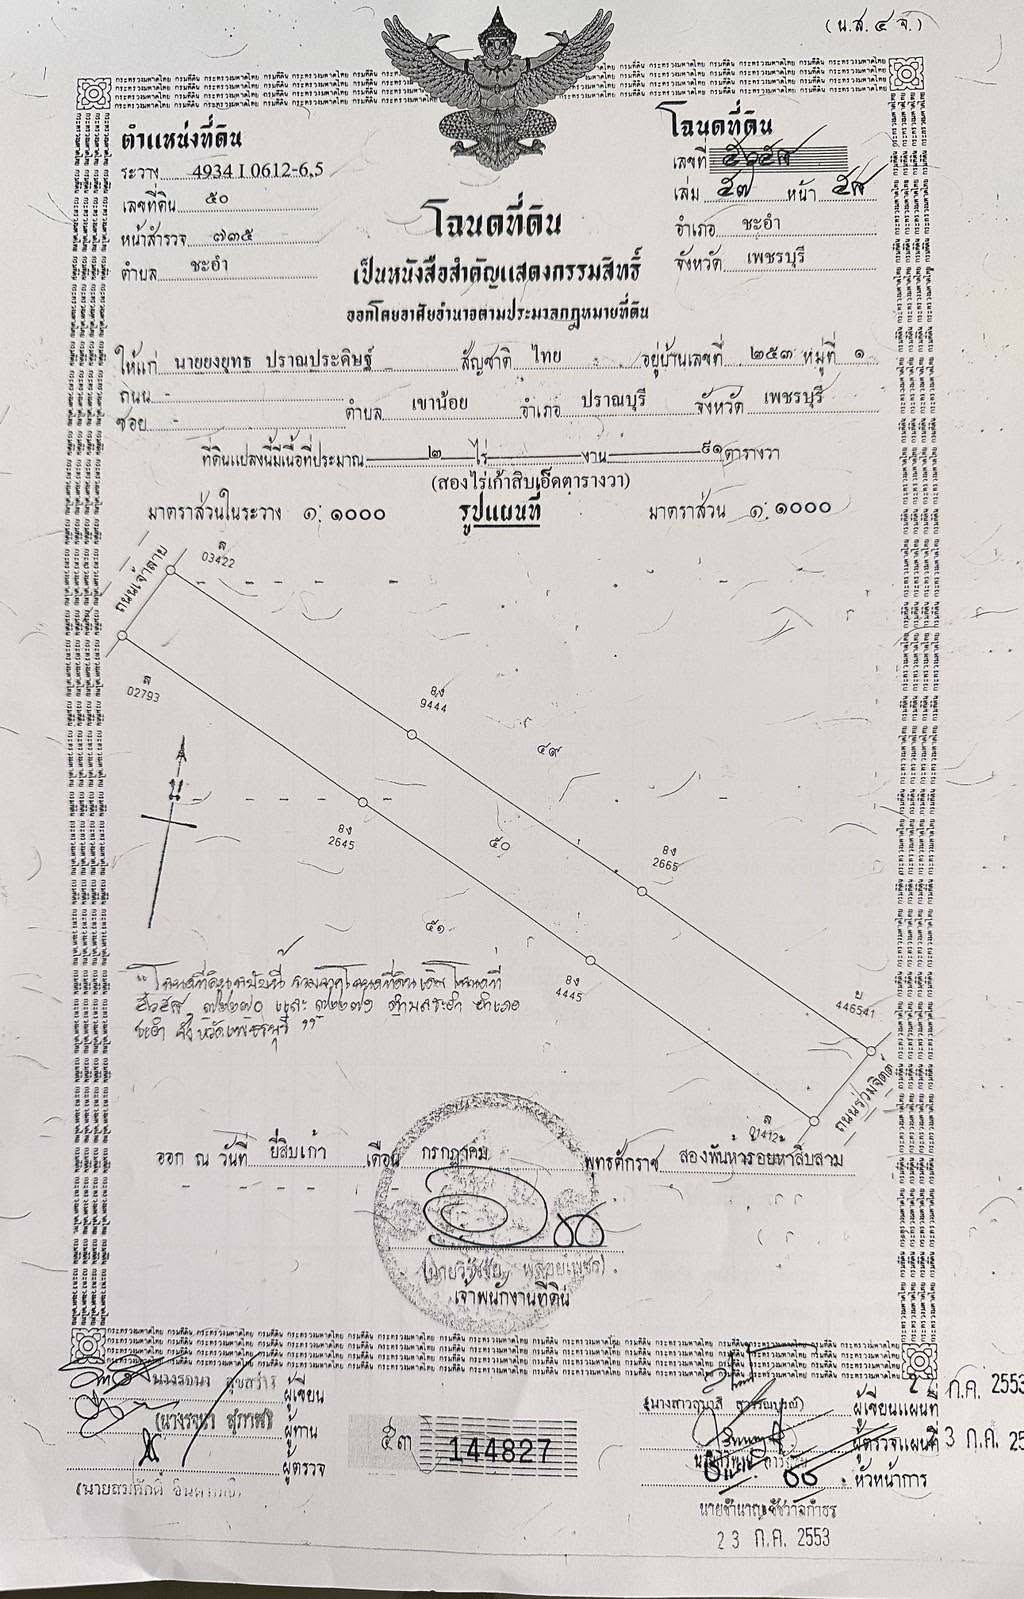 (น.ส. ๔ จ.)
ตำแหน่งที่ดิน
ระวาง 4934 I 0612-6,5
เลขที่ดิน ๕๐
หน้าสำรวจ ๗๓๕
ตำบล ชะอำ
โฉนดที่ดิน
เลขที่
เล่ม ๕๗ หน้า ๕๘
อำเภอ ชะอำ
จังหวัด เพชรบุรี
โฉนดที่ดิน
เป็นหนังสือสำคัญแสดงกรรมสิทธิ์
ออกโดยอาศัยอำนาจตามประมวลกฎหมายที่ดิน
ให้แก่ นายยงยุทธ ปราณประดิษฐ์ สัญชาติ ไทย อยู่บ้านเลขที่ ๒๕๓ หมู่ที่ ๑
ถนน -
ซอย - ตำบล เขาน้อย อำเภอ ปราณบุรี จังหวัด เพชรบุรี
ที่ดินแปลงนี้มีเนื้อที่ประมาณ ๒ ไร่ งาน ๙๑ ตารางวา
(สองไร่เก้าสิบเอ็ดตารางวา)
มาตราส่วนในระวาง ๑: ๑๐๐๐ รูปแผนที่ มาตราส่วน ๑: ๑๐๐๐
ถนนเจ้าลาย
ล
03422
ล
02793
ยง
9444
๔๙
น
ยง
2645
๕๐
ยง
2665
๕๑
ยง
4445
ย
446541
"โฉนดที่ดินฉบับนี้ รวมจากโฉนดที่ดินเดิม โฉนดที่
๓๒๒๗๐ และ ๓๒๒๗๑ ตำบลชะอำ อำเภอ
ชะอำ จังหวัดเพชรบุรี"
ถนนร่วมจิตต์
ล
ออก ณ วันที่ ยี่สิบเก้า เดือน กรกฎาคม พุทธศักราช สองพันห้าร้อยห้าสิบสาม
เจ้าพนักงานที่ดิน
ผู้เขียน
ผู้ทาน
ผู้ตรวจ
๕๓ 144827
ผู้เขียนแผนที่ ก.ค. 2553
ผู้ตรวจแผนที่ 23 ก.ค.
หัวหน้าการ
23 ก.ค. 2553